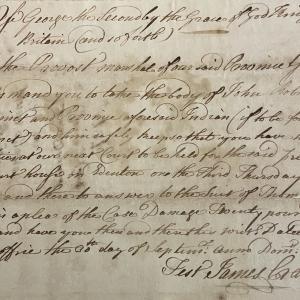 George the Second by the Grace of God King
Britain (and so forth)
the Provost marshal of our said Province
mand you to take the body of John
and Province aforesaid Indian (if to be
and him safely keep so that you have
at our next Court to be held for the said
house in Edenton on the Third Thursday
and there to answer to the Suit of
a plea of the Case Damage Twenty pou
and have you then and there this writ Dated
office the 20th day of Septemr. Anno Dom.
Test James Cra